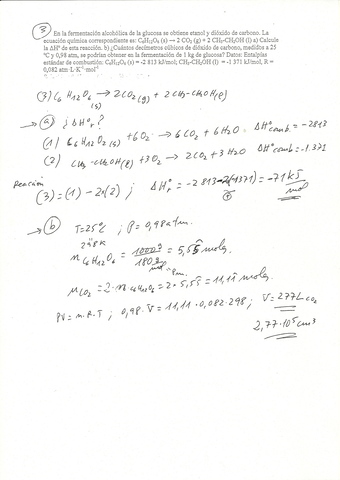 3
En la fermentación alcohólica de la glucosa se obtiene etanol y dióxido de carbono. La
ecuación química correspondiente es: C₆H₁₂O₆ (s) → 2 CO₂ (g) + 2 CH₃-CH₂OH (l) a) Calcule
la ΔHº de esta reacción. b) ¿Cuántos decímetros cúbicos de dióxido de carbono, medidos a 25
ºC y 0,98 atm, se podrían obtener en la fermentación de 1 kg de glucosa? Datos: Entalpías
estándar de combustión: C₆H₁₂O₆ (s) = -2 813 kJ/mol; CH₃-CH₂OH (l) = -1 371 kJ/mol, R =
0,082 atm·L·K⁻¹·mol⁻¹
(3) C₆H₁₂O₆ (s) → 2CO₂(g) + 2CH₃-CH₂OH(l)
→ (a) ¿ΔHºr?
(1) C₆H₁₂O₆(s) + 6O₂ → 6CO₂ + 6H₂O ΔHºcomb. = -2813
(2) CH₃-CH₂OH(l) + 3O₂ → 2CO₂ + 3H₂O ΔHºcomb = -1.371
Reacción
(3) = (1) - 2x(2) ; ΔHºr = -2813 - 2(-1371) = -71 kJ/mol
→ (b) T = 25ºC ; P = 0,98 atm.
298K
n C₆H₁₂O₆ = 1000 g / 180 g/mol = 5,55 moles.
n CO₂ = 2·n C₆H₁₂O₆ = 2 × 5,55 = 11,11 moles.
PV = n.R.T ; 0,98·V = 11,11·0,082·298 ; V = 277L CO₂
2,77·10⁵ cm³